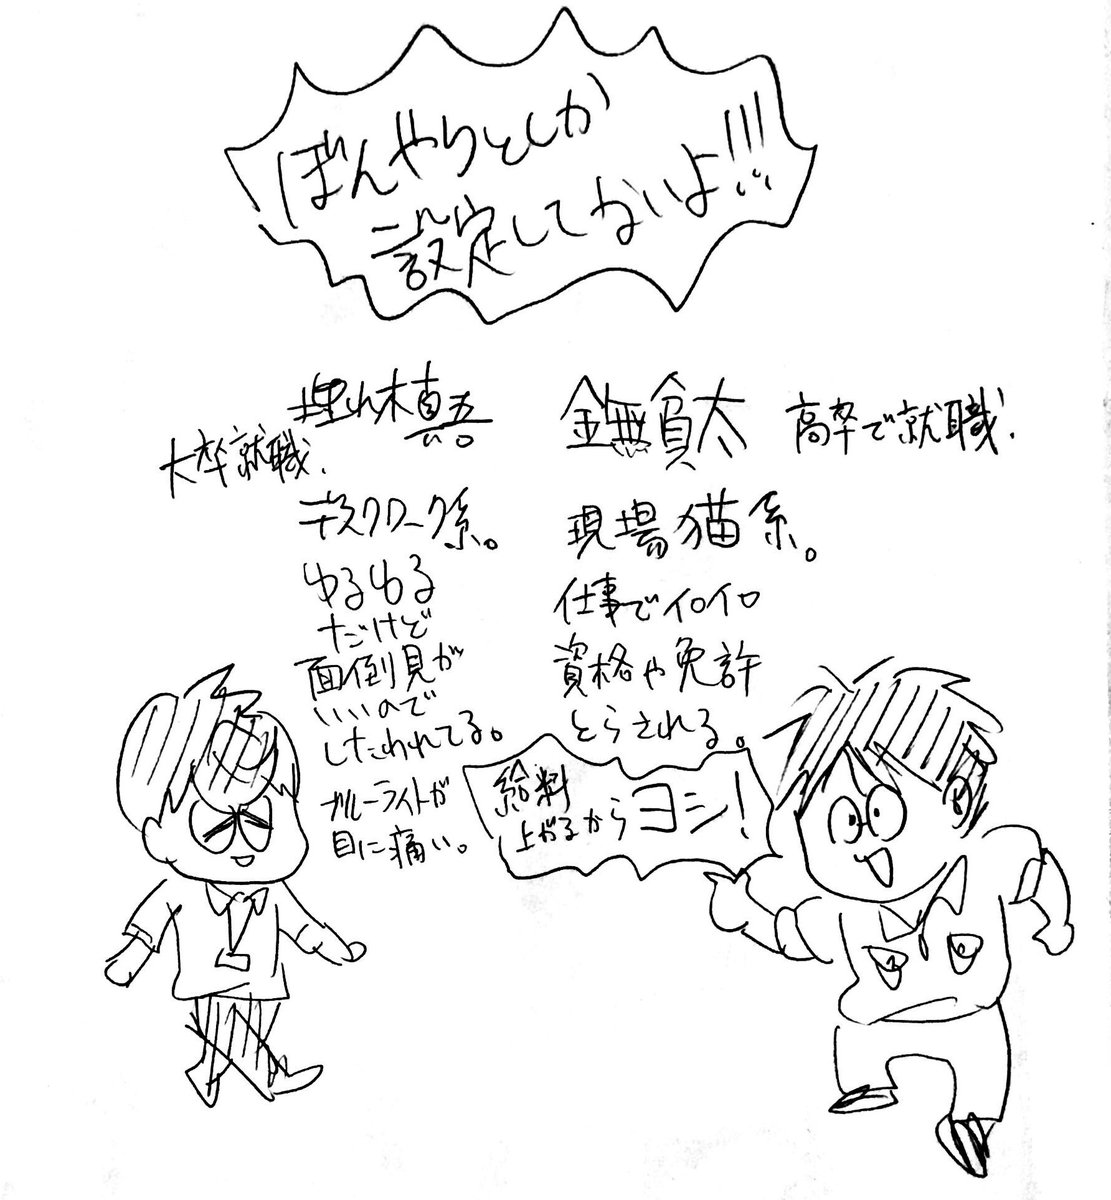 ぼんやりとしか
設定してないよ!!!
埋れ木真吾
大卒就職.
デスクワーク系。
ゆるゆる
だけど
面倒見が
いいので
したわれてる。
ブルーライトが
目に痛い。
金無負太
高卒で就職.
現場猫系。
仕事でイロイロ
資格や免許
とらされる。
給料
上がるからヨシ!